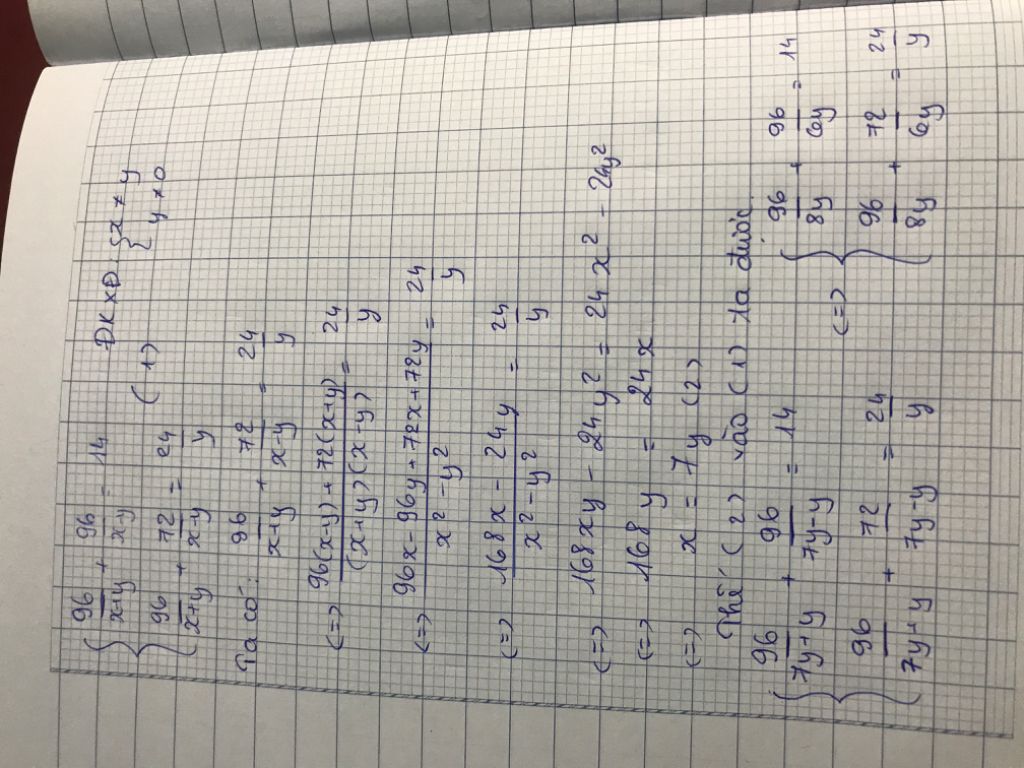 { 96/(x+y) + 96/(x-y) = 14 ĐKXĐ: { x ≠ y
{ 96/(x+y) + 72/(x-y) = 24/y (1) { y ≠ 0
Ta có: 96/(x+y) + 72/(x-y) = 24/y
(=) (96(x-y) + 72(x+y))/((x+y)(x-y)) = 24/y
(=) (96x - 96y + 72x + 72y)/(x² - y²) = 24/y
(=) (168x - 24y)/(x² - y²) = 24/y
(=) 168xy - 24y² = 24x² - 24y²
(=) 168y = 24x
(=) x = 7y (2)
Thế (2) vào (1) ta được
{ 96/(7y+y) + 96/(7y-y) = 14 (=) { 96/8y + 96/6y = 14
{ 96/(7y+y) + 72/(7y-y) = 24/y { 96/8y + 72/6y = 24/y